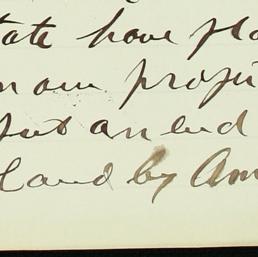 tate have pla
n our proje
put an end
land by Am